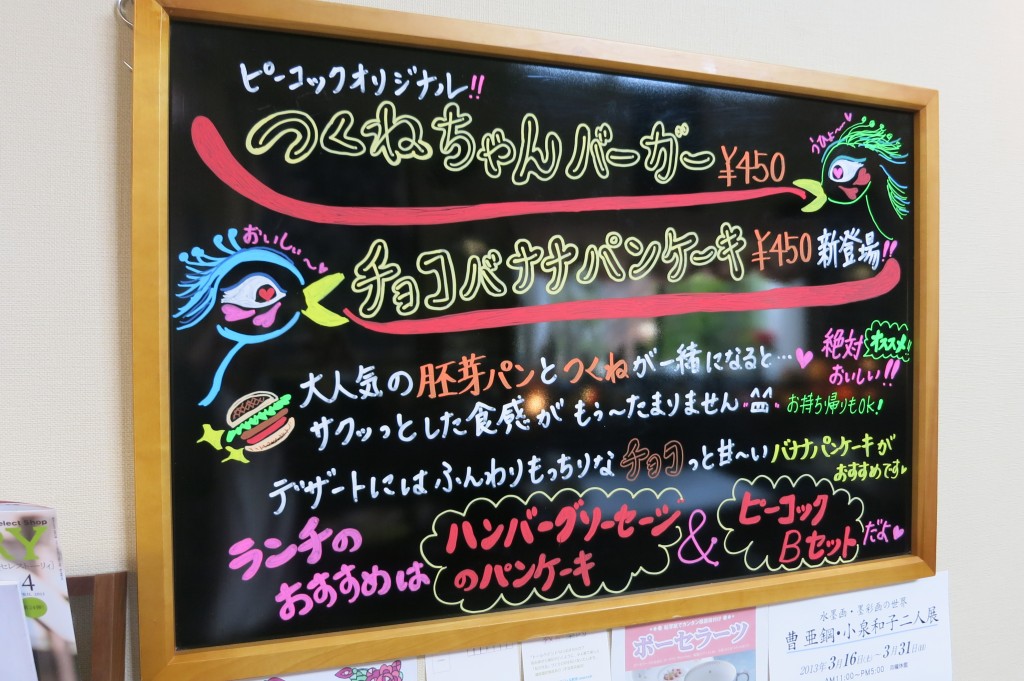 ピーコックオリジナル!!
つくねちゃんバーガー ¥450
うひょ〜〜♥
おいしぃ〜♥
チョコバナナパンケーキ ¥450 新登場!!
大人気の胚芽パンとつくねが一緒になると…♥
絶対
おいしい!!
オススメ!!
サクッっとした食感がもう〜たまりません
お持ち帰りもOK!
デザートにはふんわりもっちりなチョコっと甘〜いバナナパンケーキが
おすすめです♥
ランチの
おすすめは
ハンバーグソーセージ
のパンケーキ
&
ピーコック
Bセット
だよ♥
elect Shop
RY
4
ポーセラーツ
水墨画・墨彩画の世界
曹亜鋼・小泉和子二人展
2013年3月16日(土)〜3月31日(日)
AM11:00〜PM5:00